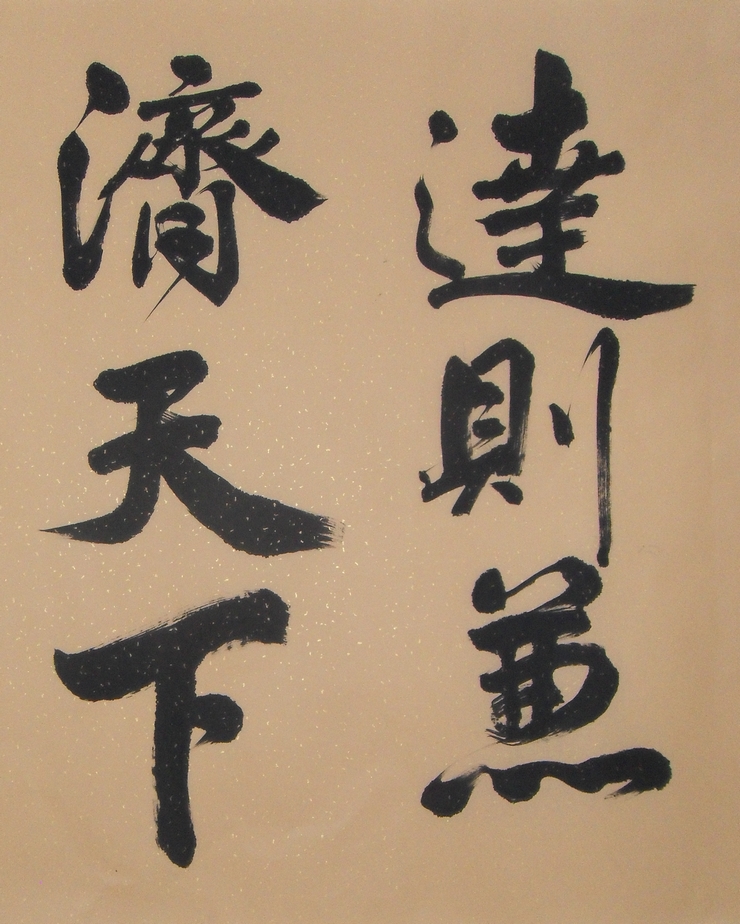 達則兼
濟天下